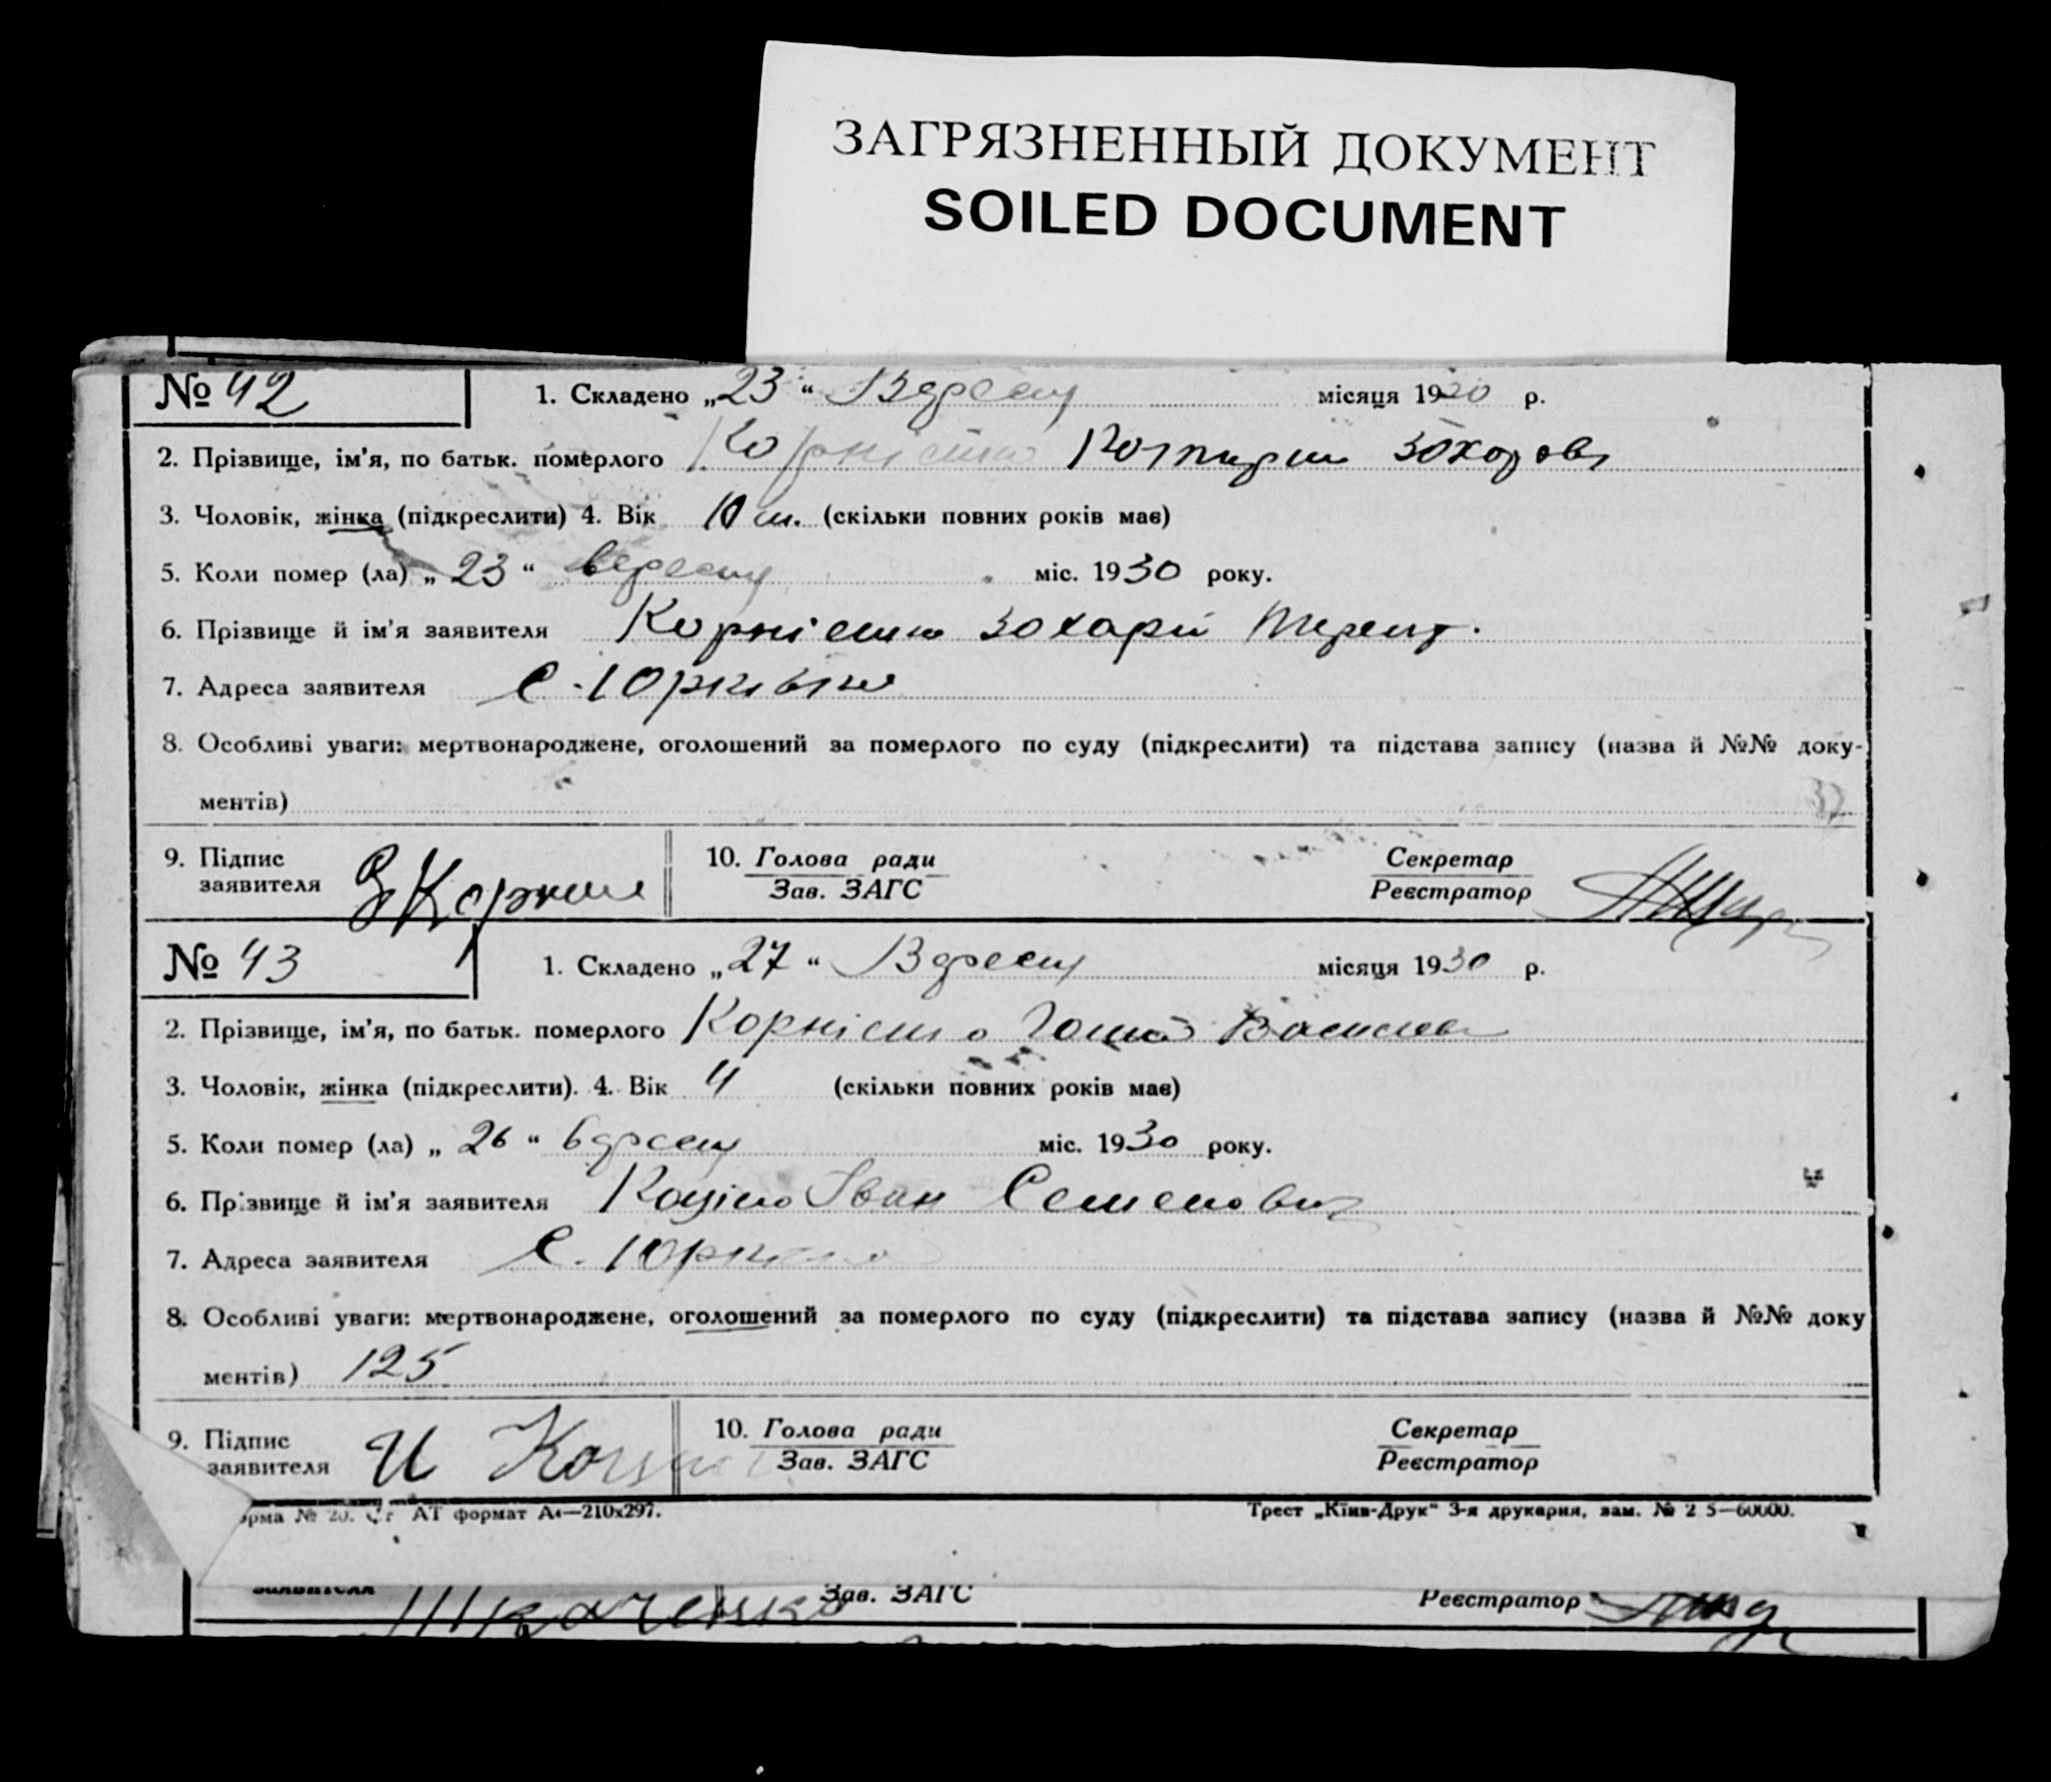 ЗАГРЯЗНЕННЫЙ ДОКУМЕНТ
SOILED DOCUMENT
№ 42 1. Складено „23“ Вересня місяця 1930 р.
2. Прізвище, ім’я, по батьк. померлого Корнієнко Зохарова
3. Чоловік, жінка (підкреслити) 4. Вік 10 м. (скільки повних років має)
5. Коли помер (ла) „23“ вересня міс. 1930 року.
6. Прізвище й ім’я заявителя Корнієнко Зохарій Терент.
7. Адреса заявителя С. Юрківка
8. Особливі уваги: мертвонароджене, оголошений за померлого по суду (підкреслити) та підстава запису (назва й №№ доку-
ментів)
9. Підпис заявителя З Корние 10. Голова ради Секретар
Зав. ЗАГС Реєстратор
№ 43 1. Складено „27“ Вересня місяця 1930 р.
2. Прізвище, ім’я, по батьк. померлого Корнієнко Василева
3. Чоловік, жінка (підкреслити). 4. Вік 4 (скільки повних років має)
5. Коли помер (ла) „26“ вересня міс. 1930 року.
6. Прізвище й ім’я заявителя Іван Семенович
7. Адреса заявителя С. Юрківка
8. Особливі уваги: мертвонароджене, оголошений за померлого по суду (підкреслити) та підстава запису (назва й №№ доку
ментів) 125
9. Підпис заявителя И 10. Голова ради Секретар
Зав. ЗАГС Реєстратор
орма № 20. АТ формат А4—210х297. Трест „Київ-Друк“ 3-я друкарня, зам. № 2 5—60000.
заявителя Ткаченко Зав. ЗАГС Реєстратор